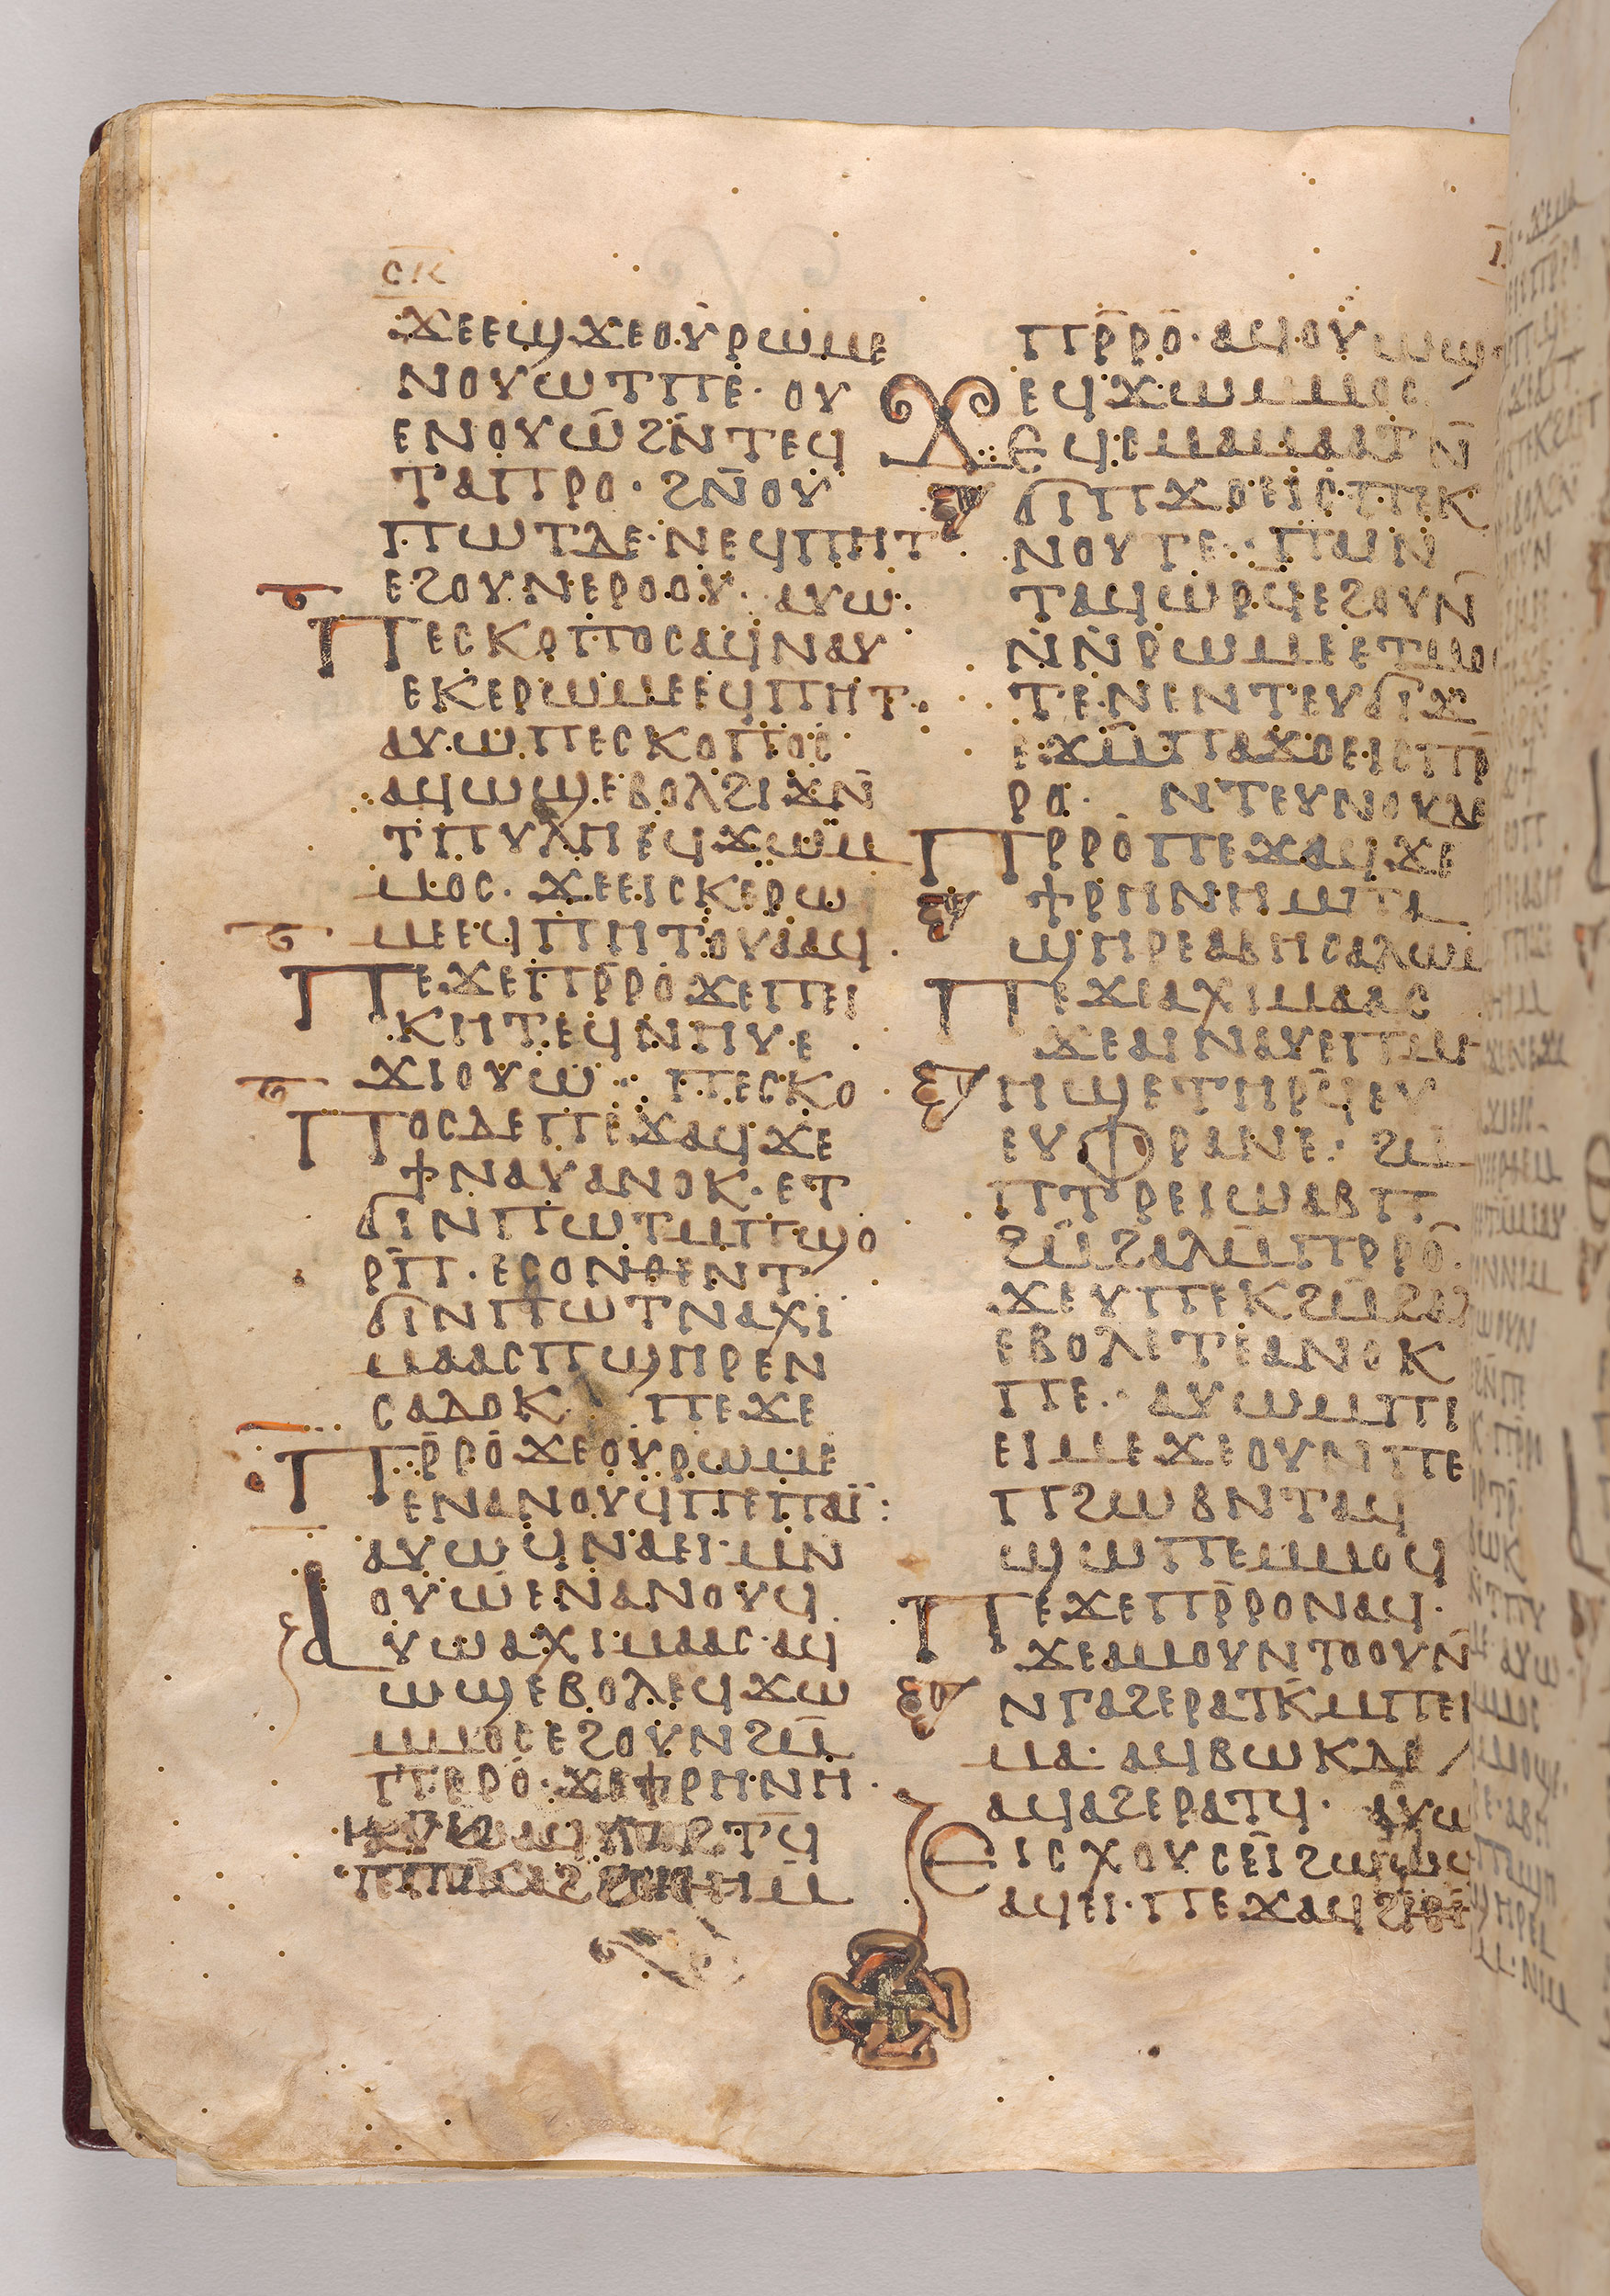 ⲥⲕ
ϫⲉⲉϣϫⲉⲟⲩⲣⲱⲙⲉ
ⲛⲟⲩⲱⲧⲡⲉ· ⲟⲩ
ⲉⲛⲟⲩⲱ̅ϩⲛ̅ⲧⲉϥ
ⲧⲁⲡⲣⲟ· ϩⲛ̅ⲟⲩ
ⲡⲱⲧⲇⲉ·ⲛⲉϥⲡⲏⲧ
ⲉϩⲟⲩⲛⲉⲣⲟⲟⲩ· ⲁⲩⲱ·
ⲡⲉⲥⲕⲟⲡⲟⲥⲁϥⲛⲁⲩ
ⲉⲕⲉⲣⲱⲙⲉⲉϥⲡⲏⲧ·
ⲁⲩⲱⲡⲉⲥⲕⲟⲡⲟⲥ
ⲁϥⲱϣ·ⲉⲃⲟⲗϩⲓϫⲛ̅
ⲧⲡⲩⲗⲏⲉϥϫⲱⲙ
ⲙⲟⲥ· ϫⲉⲉⲓⲥⲕⲉⲣⲱ
ⲙⲉⲉϥⲡⲏⲧⲟⲩⲁⲁϥ·
ⲡⲉϫⲉⲡⲣ̅ⲣⲟϫⲉⲡⲉⲓ
ⲕⲏⲧⲉϥⲛⲡⲩ·ⲉ
ϫⲓⲟⲩⲱ·· ⲡⲉⲥⲕⲟ
ⲡⲟⲥⲇⲉⲡⲉϫⲁϥϫⲉ
ϯⲛⲁⲩⲁⲛⲟⲕ·ⲉⲧ
ϭⲓⲛⲡⲱⲧⲙⲡϣⲟ
ⲣⲡ̅·ⲉⲥⲟⲛⲑⲉⲛⲧ
ϭⲓⲛⲡⲱⲧⲛⲁⲭⲓ
ⲙⲁⲁⲥⲡϣⲏⲣⲉⲛ
ⲥⲁⲇⲟⲕ ⲡⲉϫⲉ
ⲡⲣ̅ⲣⲟ̅ϫⲉⲟⲩⲣⲱⲙⲉ
ⲉⲛⲁⲛⲟⲩϥⲡⲉⲡⲁⲓ̈:
ⲁⲩⲱϥⲛⲁⲉⲓ·ⲙⲛ
ⲟⲩⲱⲉⲛⲁⲛⲟⲩϥ
ⲁⲩⲱⲁⲭⲓⲙⲁⲁⲥ·ⲁϥ
ⲱϣⲉⲃⲟⲗⲉϥϫⲱ
ⲙⲙⲟⲥⲉϩⲟⲩⲛϩⲙ̅
ⲡⲣ̅ⲣⲟ·ϫⲉϯⲣⲏⲛⲏ·
ⲡⲣ̅ⲣⲟ̅·ⲁϥⲟⲩⲱϣ
ⲉϥϫⲱⲙⲙⲟⲥ
ϫⲉϥⲥⲙⲁⲙⲁⲁⲧⲛ̅
ϭⲓⲡϫⲟⲉⲓⲥⲡⲉⲕ
ⲛⲟⲩⲧⲉ·· ⲡⲁⲓⲛ
ⲧⲁϥⲱⲣϥⲉϩⲟⲩⲛ̅
ⲛ̅ⲛ̅ⲣⲱⲙⲉⲉⲧⲙⲟ
ⲧⲉ·ⲛⲉⲛⲧⲉⲩϭⲓϫ
ⲉϫⲙ̅ⲡⲁϫⲟⲉⲓⲥⲡⲣ̅
ⲣⲟ· ⲛⲧⲉⲩⲛⲟⲩⲇⲉ
ⲡⲣⲣⲟ̅ⲡⲉϫⲁϥϫⲉ
ϯⲣⲏⲛⲏⲙⲡⲁ
ϣⲏⲣⲉⲁⲃⲏⲥⲁⲗⲱⲙ
ⲡⲉϫⲉⲁⲭⲓⲙⲁⲁⲥ
ϫⲉⲁⲓⲛⲁⲩⲉⲡⲙ
ⲏϣⲉⲧⲏⲣϥ̅ⲉⲩ
ⲉⲩⲫⲣⲁⲛⲉ: ϩⲙ̅
ⲡⲧⲣⲉⲓⲱⲁⲃⲡ
ϩⲙ̅ϩⲁⲗⲙ̅ⲡⲣⲣⲟ̅·
ϫⲉⲩⲡⲉⲕϩⲙ̅ϩⲁⲗ
ⲉⲃⲟⲗⲉⲧⲉⲁⲛⲟⲕ
ⲡⲉ· ⲁⲩⲱⲙⲡⲓ
ⲉⲓⲙⲉϫⲉⲟⲩⲛⲡⲉ
ⲡϩⲱⲃⲛⲧⲁϥ
ϣⲱⲡⲉⲙⲙⲟϥ
ⲡⲉϫⲉⲡⲣ̅ⲣⲟⲛⲁϥ·
ϫⲉⲁⲙⲟⲩⲛⲧⲟⲟⲩⲛ̅
ⲛⲅⲁϩⲉⲣⲁⲧⲕ̅ⲙⲡⲉⲓ
ⲙⲁ· ⲁϥⲃⲱⲕⲇⲉ
ⲁϥⲁϩⲉⲣⲁⲧϥ· ⲁⲩⲱ
ⲉⲓⲥⲭⲟⲩⲥⲉⲓ̈ϩⲱⲱϥ
ⲁϥⲉⲓ·ⲡⲉϫⲁϥ